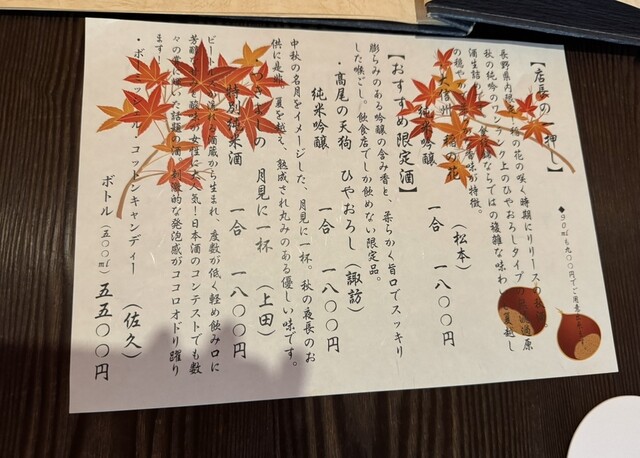 【店長の一押し】
◆90mlも九〇〇円でご用意
大信州　純米吟醸　稲の花　（松本）
一合　一八〇〇円
長野県内限定、稲の花の咲く時期にリリース
秋の純吟のワンランク上のひやおろしタイプ
夏越し
酒生詰め
ならではの複雑な味わ
の穏やか
香味が特徴。
【おすすめ限定酒】
・高尾の天狗　ひやおろし（諏訪）
純米吟醸　一合　一八〇〇円
膨らみのある吟醸の含み香と、柔らかく旨口でスッキリ
した喉ごし。飲食店でしか飲めない限定品。
月見に一杯　（上田）
特別純米酒　一合　一八〇〇円
中秋の名月をイメージした、月見に一杯。秋の夜長のお
供に是非。夏を越え、熟成され丸みのある優しい味です。
コットンキャンディー　（佐久）
ボトル（五〇〇ml）五五〇〇円
酒蔵から生まれ、度数が低く軽め飲み口に
女性に大人気！日本酒のコンテストでも数
々の賞に輝いた話題の酒。刺激的な発泡感がココロオドリ踊り
ます！